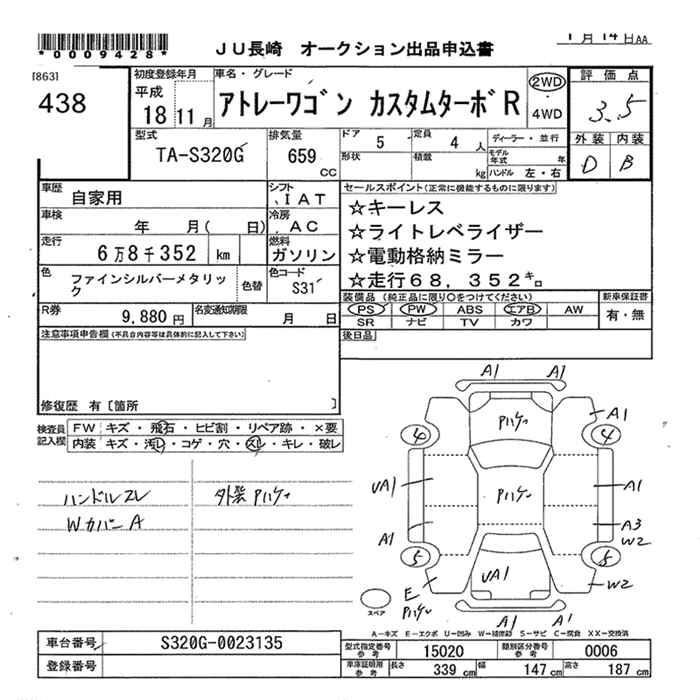 *0009428*
JU長崎 オークション出品申込書
1月14日AA
[863]
438
初度登録年月
平成
18 11月
車名・グレード
アトレーワゴン カスタムターボR
2WD
4WD
評価点
3.5
型式
TA-S320G
排気量
659
CC
ドア 5
定員 4 人
ディーラー・並行
形状
積載 kg
モデル年式 年
ハンドル 左・右
外装 内装
D B
車歴 自家用
シフト IAT
車検 年 月( 日)
冷房 AC
走行 6万8千352 km
燃料 ガソリン
色 ファインシルバーメタリック
色替
色コード S31
セールスポイント(正常に機能するものに限ります)
☆キーレス
☆ライトレベライザー
☆電動格納ミラー
☆走行68,352㌔
R券 9,880 円
名変通知期限 月 日
装備品(純正品に限り〇をつけてください)
PS PW ABS エアB AW
SR ナビ TV カワ
新車保証書
有・無
後日品
注意事項申告欄(不具合内容等は具体的に記入して下さい)
修復歴 有〔箇所 〕
検査員記入欄
FW キズ・飛石・ヒビ割・リペア跡・×要
内装 キズ・汚レ・コゲ・穴・スレ・キレ・破レ
ハンドルスレ
WカバーA
外装Pハゲ
A1 A1
Pハゲ
A1
4 4
UA1
Pハゲ
A1
A1
A3
W2
5 5
E
Pハゲ
UA1
W2
スペア
A1 A1
A-キズ E-エクボ U-凹み W-補修跡 S-サビ C-腐食 XX-交換済
車台番号 S320G-0023135
登録番号
型式指定番号 参考 15020
類別区分番号 参考 0006
車庫証明用 参考 長さ 339 cm 幅 147 cm 高さ 187 cm